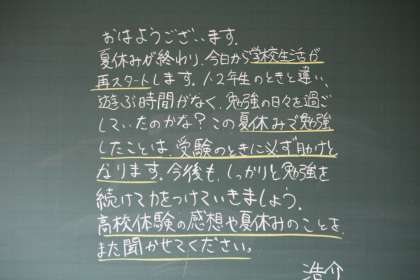 おはようございます。
夏休みが終わり、今日から学校生活が
再スタートします。1・2年生のときと違い、
遊ぶ時間がなく、勉強の日々を過ご
していたのかな?この夏休みで勉強
したことは、受験のときに必ず助けと
なります。今後も、しっかりと勉強を
続けて力をつけていきましょう。
高校体験の感想や夏休みのことを、
また聞かせてください。
浩介